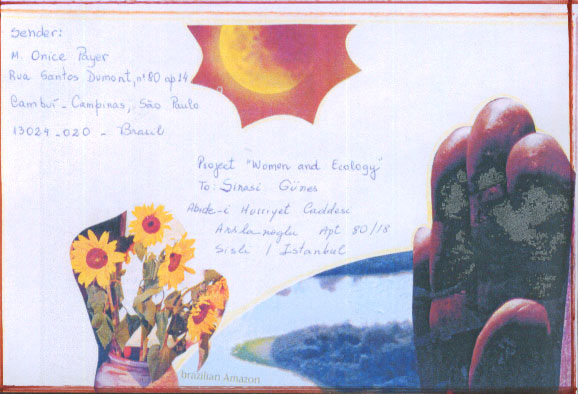 Sender:
M. Onice Payer
Rua Santos Dumont, nº 80 ap 14
Cambuí - Campinas, São Paulo
13024-020 - Brasil
Project "Women and Ecology"
To: Sinasi Günes
Abide-i Hurriyet Caddesi
Apt 80/18
Sisli / Istanbul
brazilian Amazon